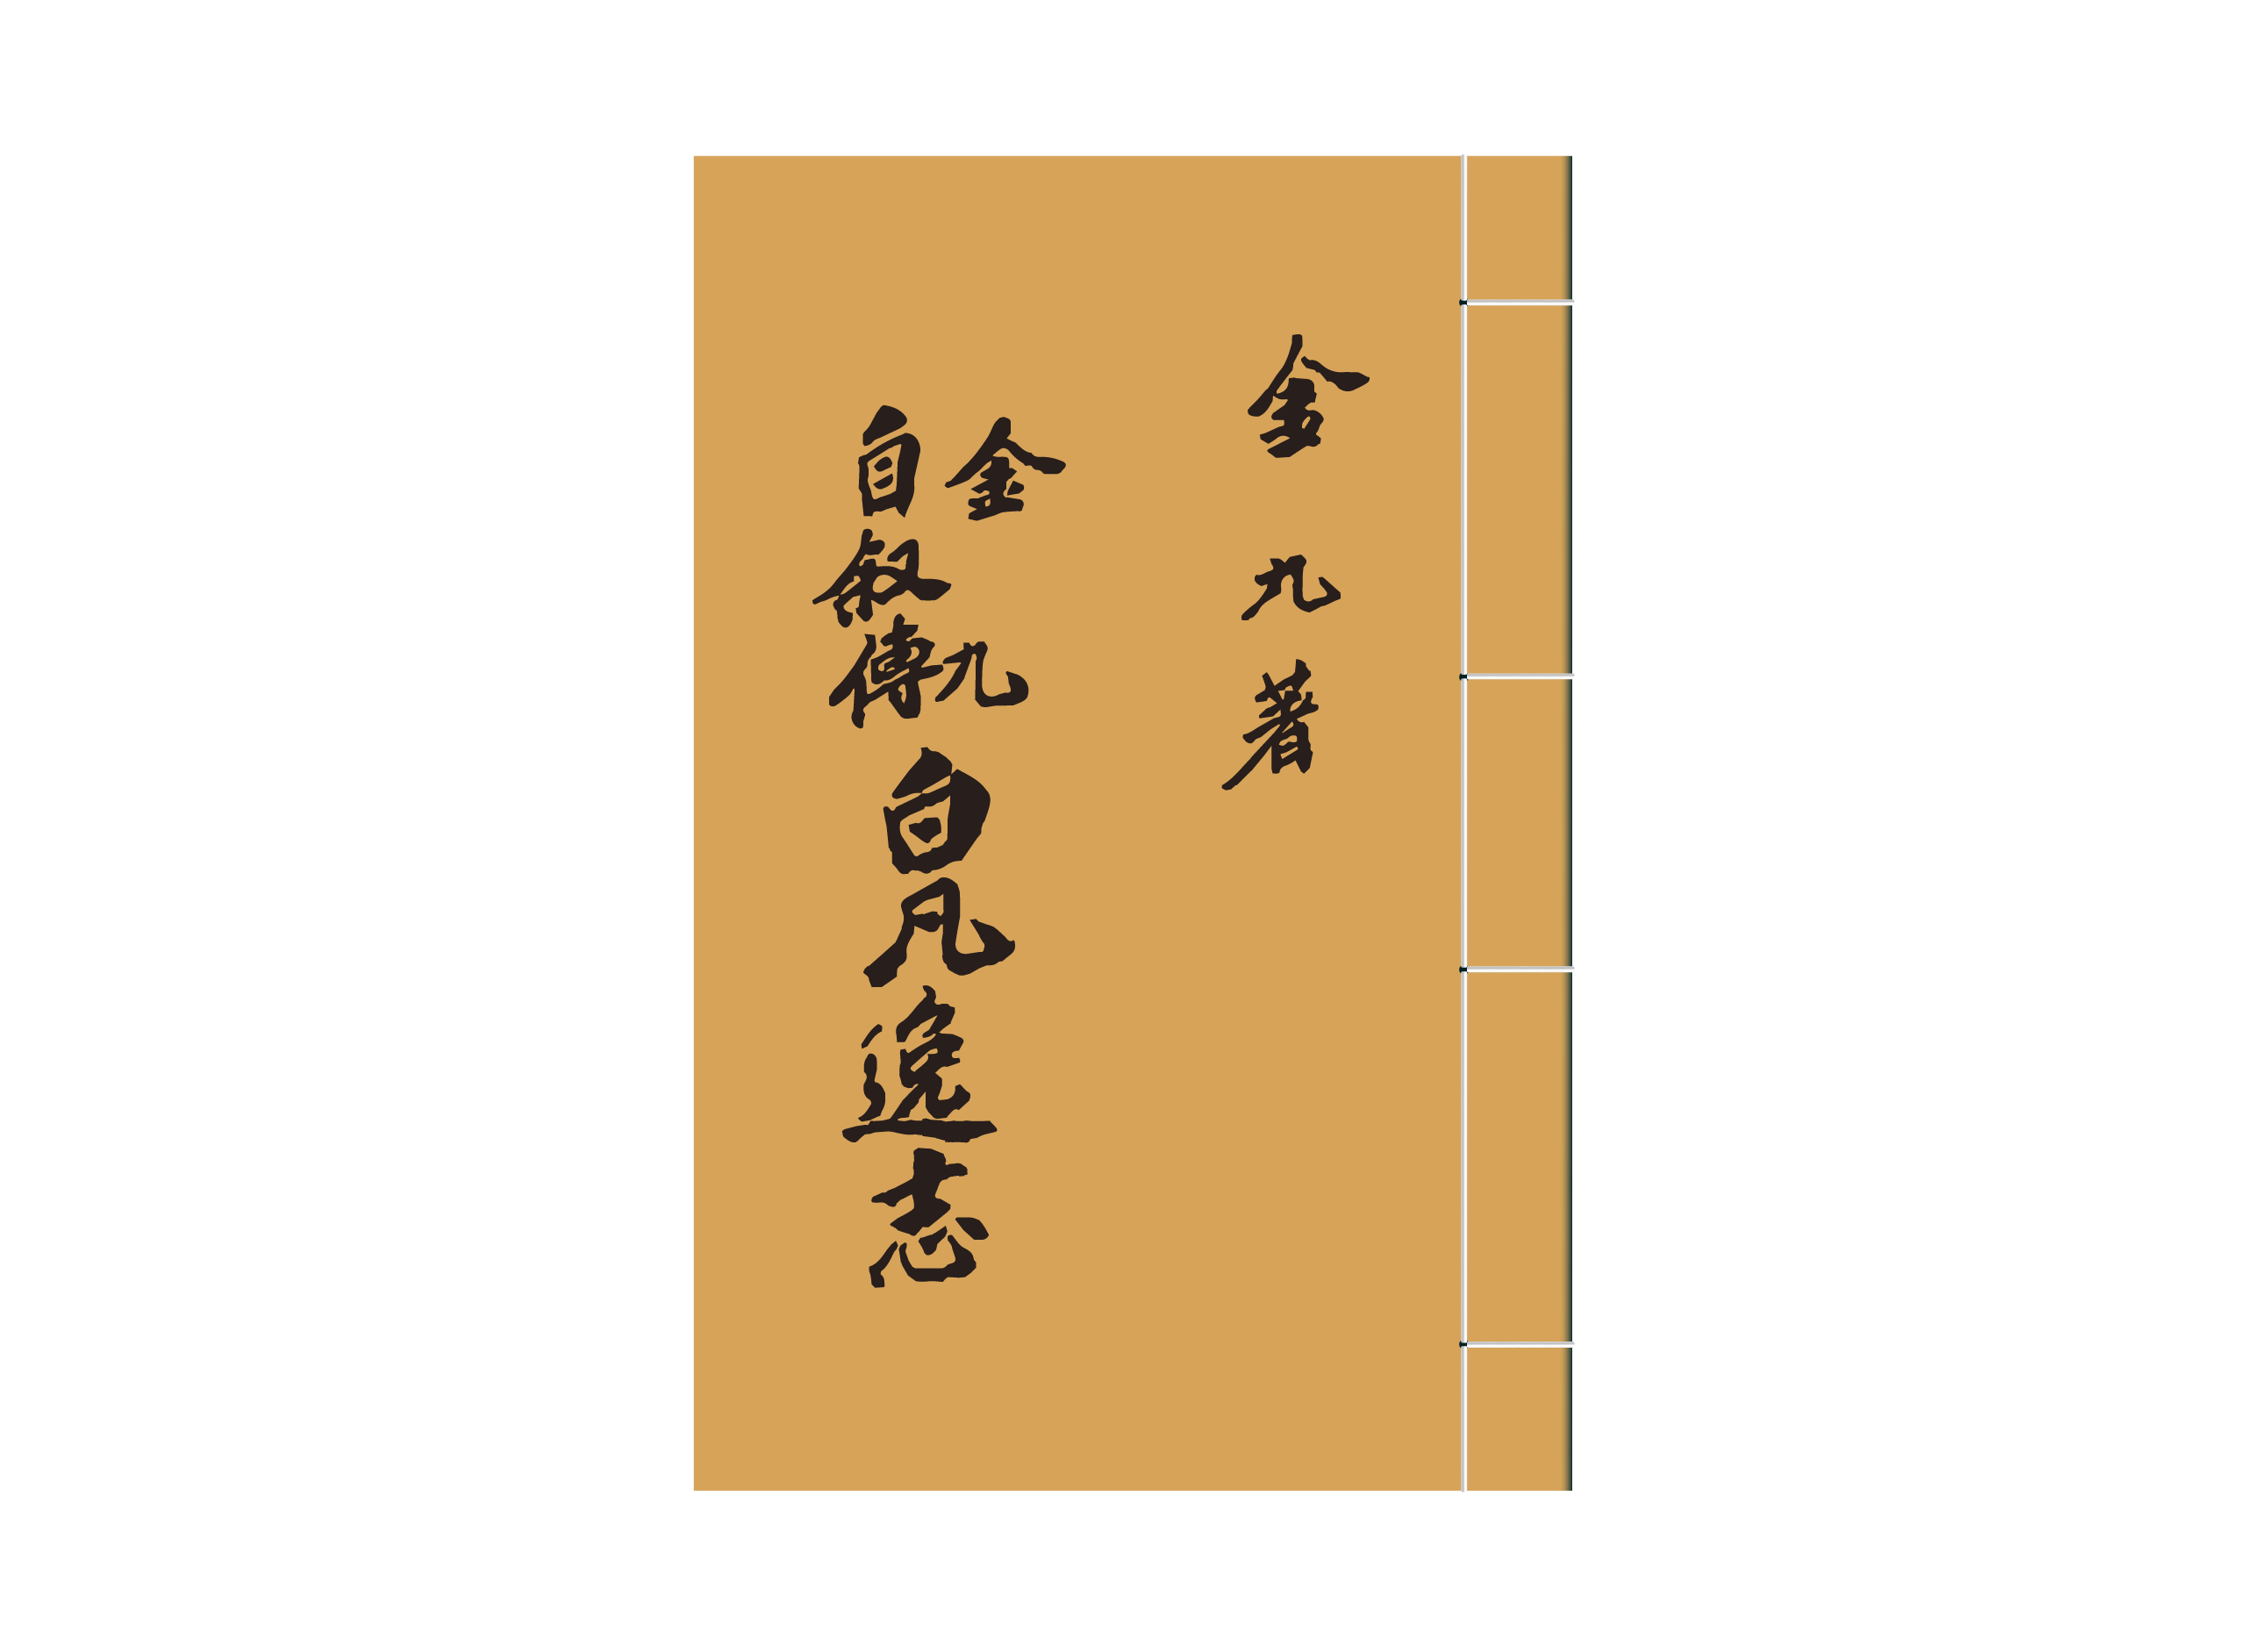 金九著
金九
自叙傳白凡逸志